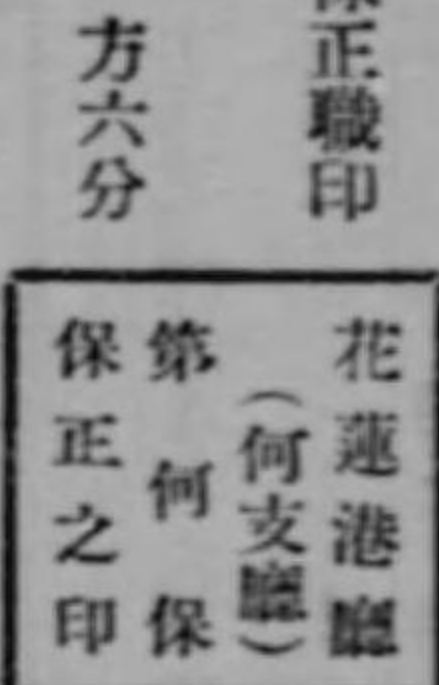 保正職印
方六分
花蓮港廳
（何支廳）
第何保
保正之印